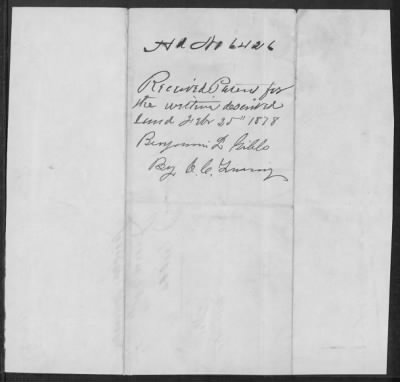 Hd No 6426
Received Patent for
the within described
land Febr 25" 1878
Benjamin D Gibbs
By C. C.